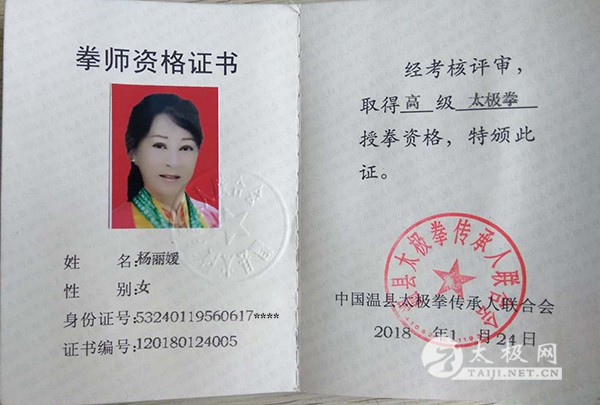 拳师资格证书
姓 名:杨丽媛
性 别:女
身份证号:53240119560617****
证书编号:120180124005
经考核评审，
取得高级太极拳
授拳资格，特颁此
证。
温县太极拳传承人联合会
中国温县太极拳传承人联合会
2018 年1 月24日
太极网
TAIJI.NET.CN